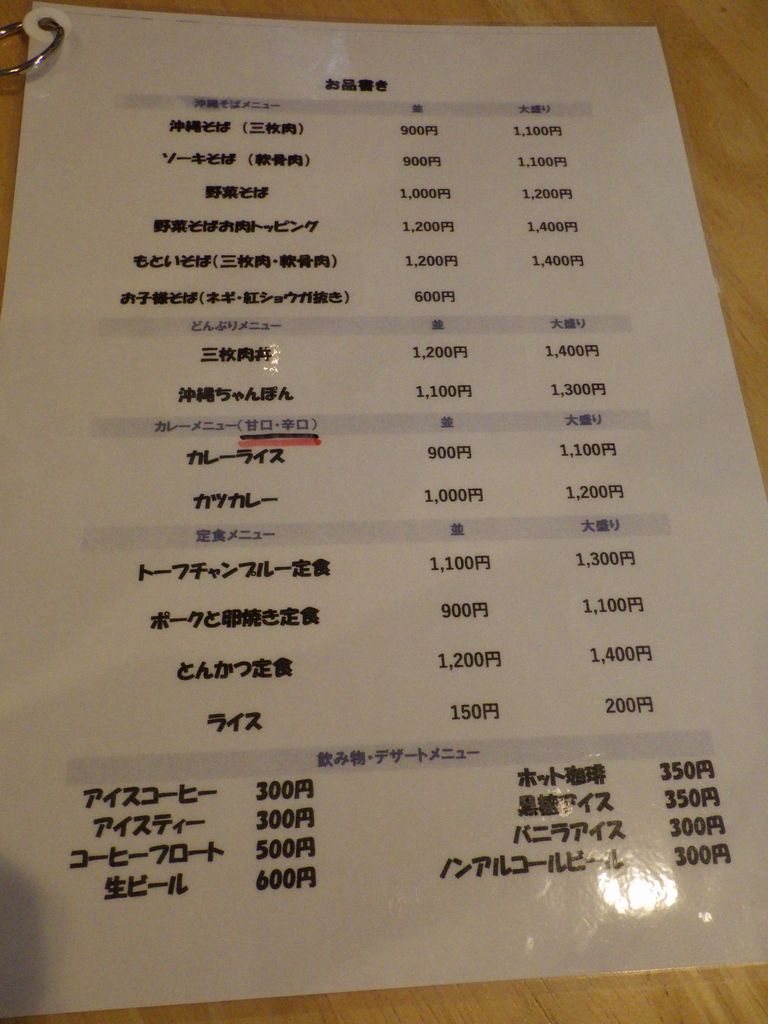 お品書き
沖縄そばメニュー 並 大盛り
沖縄そば （三枚肉） 900円 1,100円
ソーキそば （軟骨肉） 900円 1,100円
野菜そば 1,000円 1,200円
野菜そばお肉トッピング 1,200円 1,400円
もといそば（三枚肉・軟骨肉） 1,200円 1,400円
お子様そば（ネギ・紅ショウガ抜き） 600円
どんぶりメニュー 並 大盛り
三枚肉丼 1,200円 1,400円
沖縄ちゃんぽん 1,100円 1,300円
カレーメニュー（甘口・辛口） 並 大盛り
カレーライス 900円 1,100円
カツカレー 1,000円 1,200円
定食メニュー 並 大盛り
トーフチャンプルー定食 1,100円 1,300円
ポークと卵焼き定食 900円 1,100円
とんかつ定食 1,200円 1,400円
ライス 150円 200円
飲み物・デザートメニュー
アイスコーヒー 300円 ホット珈琲 350円
アイスティー 300円 黒糖アイス 350円
コーヒーフロート 500円 バニラアイス 300円
生ビール 600円 ノンアルコールビール 300円